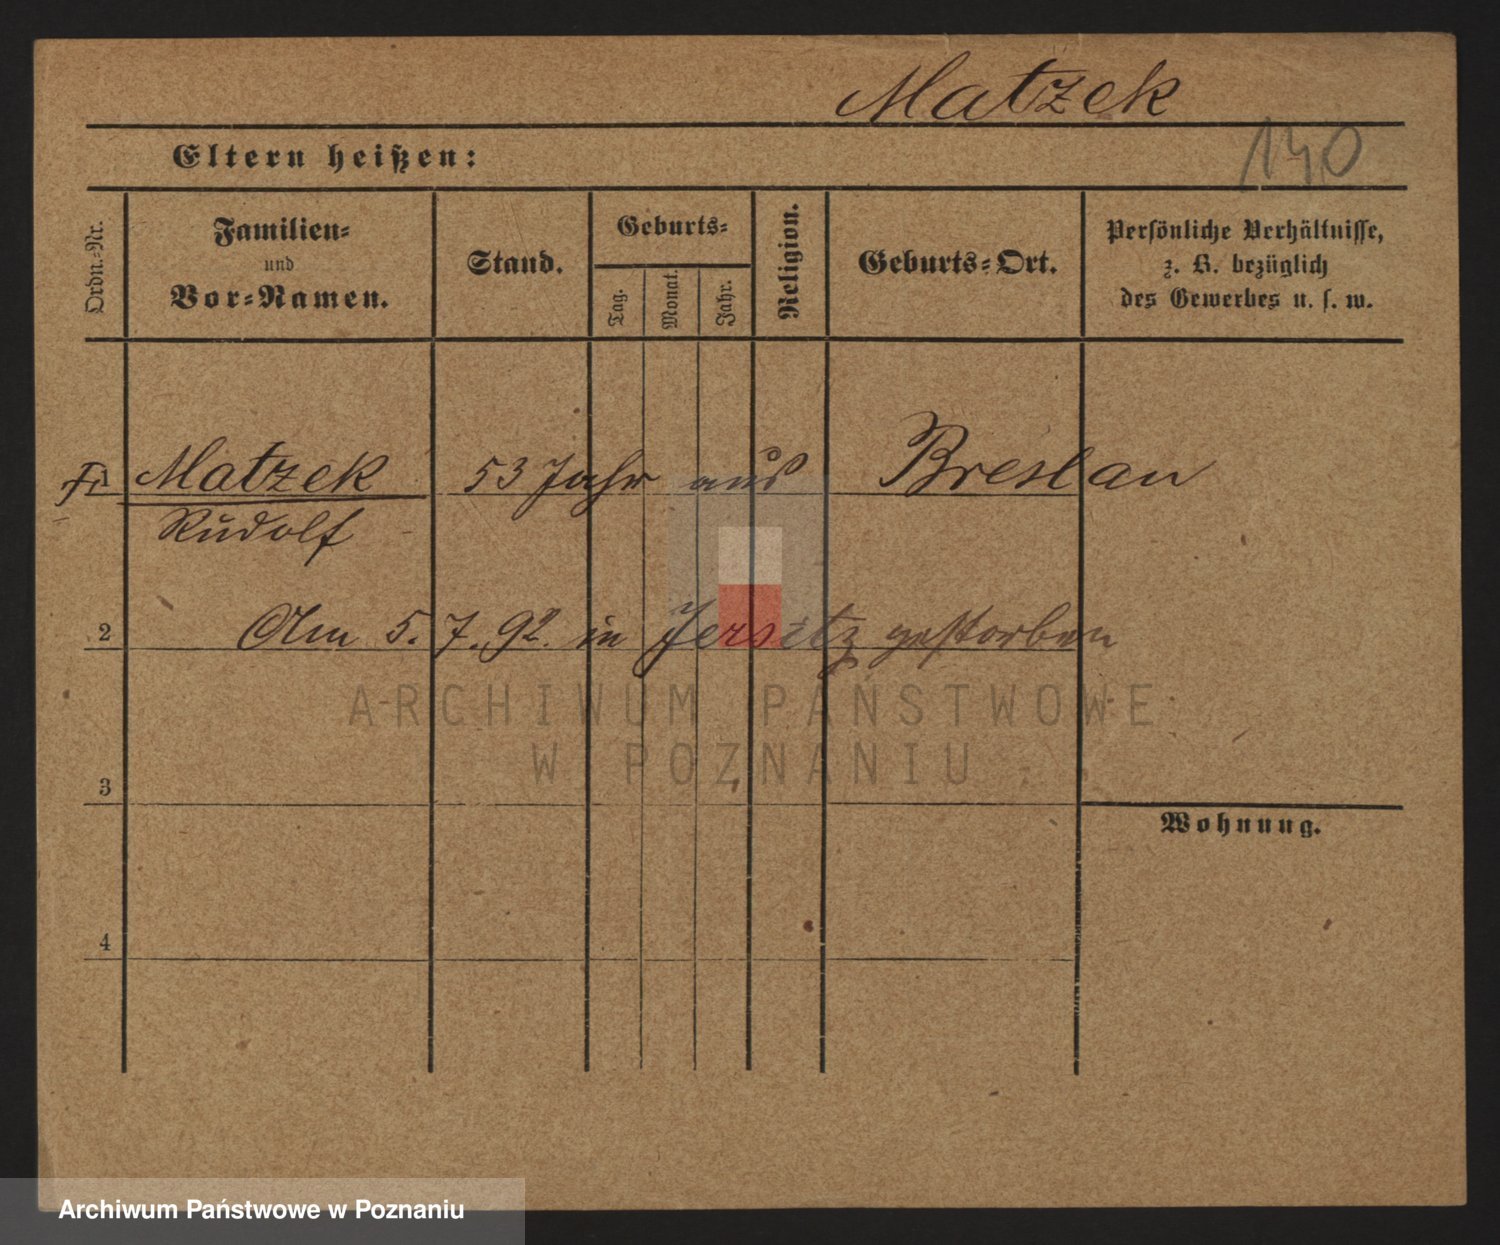 Matzek
140
Eltern heißen:
Ordn.-Nr.
Familien-
und
Vor-Namen.
Stand.
Geburts-
Tag.
Monat.
Jahr.
Religion.
Geburts-Ort.
Persönliche Verhältnisse,
z. B. bezüglich
des Gewerbes u. s. w.
1 Matzek 53 Jahr aus Breslau
Rudolf
2 Am 5. 7. 92. in Jersitz gestorben
ARCHIWUM PAŃSTWOWE
W POZNANIU
3
Wohnung.
4
Archiwum Państwowe w Poznaniu